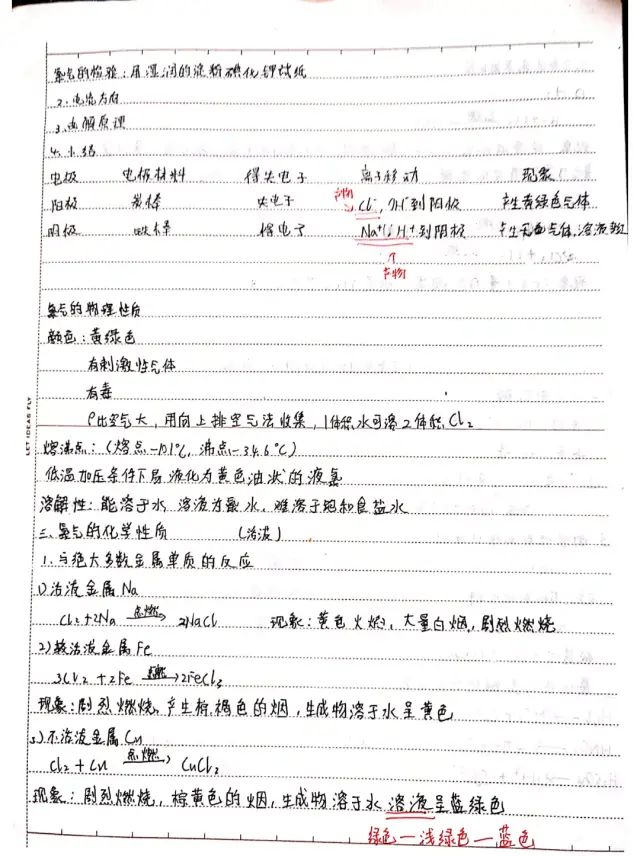 氯气的检验：用湿润的淀粉碘化钾试纸
2.电流方向
3.电解原理
4.小结
电极 电极材料 得失电子 离子移动 现象
产物
阳极 炭棒 失电子 Cl⁻,OH⁻到阳极 产生黄绿色气体
阴极 铁棒 得电子 Na⁺ H⁺到阴极 产生无色气体,溶液
产物
氯气的物理性质
颜色：黄绿色
有刺激性气体
有毒
ρ比空气大，用向上排空气法收集，1体积水可溶2体积Cl₂
熔沸点：(熔点-101℃，沸点-34.6℃)
低温加压条件下易液化为黄色油状的液氯
溶解性：能溶于水 溶液为氯水，难溶于饱和食盐水
三.氯气的化学性质 (活泼)
1.与绝大多数金属单质的反应
1)活泼金属Na
Cl₂+2Na 点燃→ 2NaCl 现象：黄色火焰，大量白烟，剧烈燃烧
2)较活泼金属Fe
3Cl₂+2Fe 点燃→ 2FeCl₃
现象：剧烈燃烧，产生棕褐色的烟，生成物溶于水呈黄色
3)不活泼金属Cu
Cl₂+Cu 点燃→ CuCl₂
现象：剧烈燃烧，棕黄色的烟，生成物溶于水溶液呈蓝绿色
绿色—浅绿色—蓝色
LET IDEAS FLY